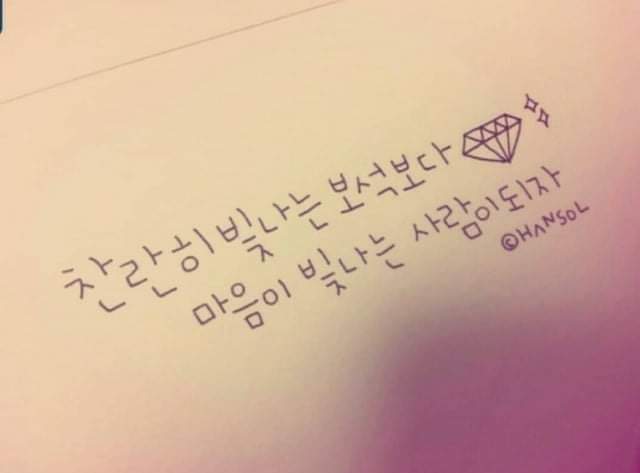 찬란히 빛나는 보석보다
마음이 빛나는 사람이되자
©HANSOL